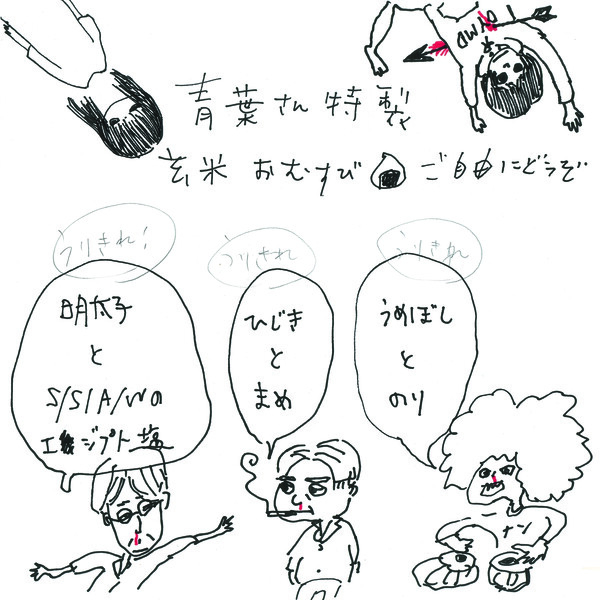 OYMD
青葉さん特製
玄米 おむすび ご自由にどうぞ
うりきれ!
うりきれ
うりきれ
明太子
と
S/S/A/Wの
エジプト塩
ひじき
と
まめ
うめぼし
と
のり
ナン